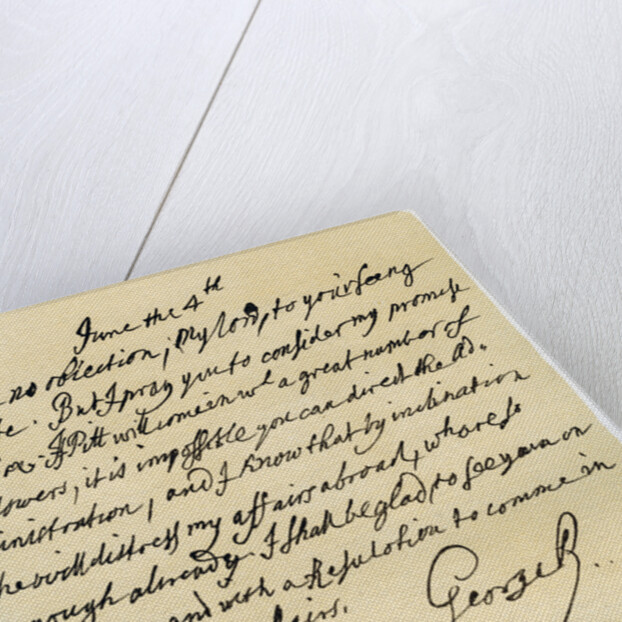 June the 4th
no objection, My lord, to your seeing
But I pray you to consider my promise
if Pitt will come in wt a great number of
lowers, it is impossible you can direct the Ad.
inistration, and I know that by inclination
he will distress my affairs abroad, whare do
nough already. I shall be glad to see you on
and with a Resulotion to comme in
airs.
George R